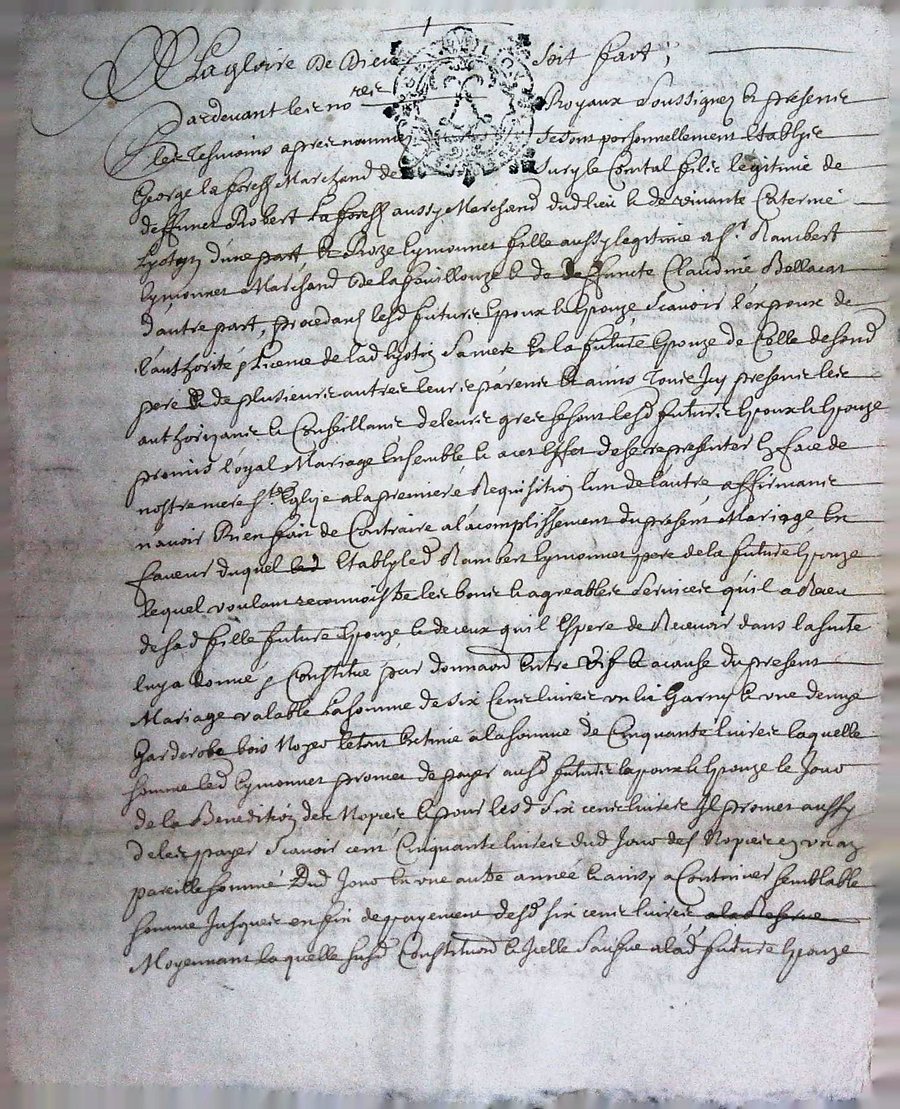 A La gloire de Dieu soit fait ;
Pardevant les no res Royaux soussignez et presents
les tesmoins apres nommez se sont personnellement establis
George la forest Marchand de Sury le Comtal fils legitime de
deffunct Robert La forest aussy Marchand dud lieu et de vivante
d'une part et Roze Eymonnet fille aussy legitime a Sr. Rambert
Eymonnet Marchand de la fouillouze et de deffuncte Claudine Bellacar
d'autre part, procedans lesd futurs Epoux et Epouze scavoir l'epoux de
l'authorité et licence de lad sa mere et la future Epouze de Celle de sond
pere et de plusieurs autres leurs parens et amis tous icy presents les
authorizants et Conseillants de leurs grez lesd futurs Epoux et Epouze
promis loyal Mariage Ensemble et a cet effet de se representer En face de
nostre mere Ste Eglize a la premiere Requisition l'un de l'autre affirmants
n'avoir Rien fait de Contraire a l'acomplissement du present Mariage En
faveur duquel Estably led Rambert Eymonnet pere de la future Epouze
lequel voulant reconnoistre les bons et agreables services qu'il a Receu
de sad fille future Epouze et de ceux qu'il Espere de Recevoir dans la suitte
luy a donné et Constitué par donnaon Entre Vif et a cause du present
Mariage valable La somme de six Cents livres un lit Garny et une demye
Garderobe bois Noyer le tout Estimé a la somme de Cinquante livres laquelle
somme led Eymonnet promet de payer ausd futurs Epoux et Epouze le Jour
de la Benediction des Nopces et pour lesd six cents livres Il promet aussy
de les payer scavoir cent Cinquante livres dud Jour des Nopces en un an
pareille somme dud Jour En une autre année et ainsy a Continuer semblable
somme Jusques en fin de payement desd six cents livres a la Reserve
Moyennant laquelle susd Constituon et Icelle sauve a lad future Epouze